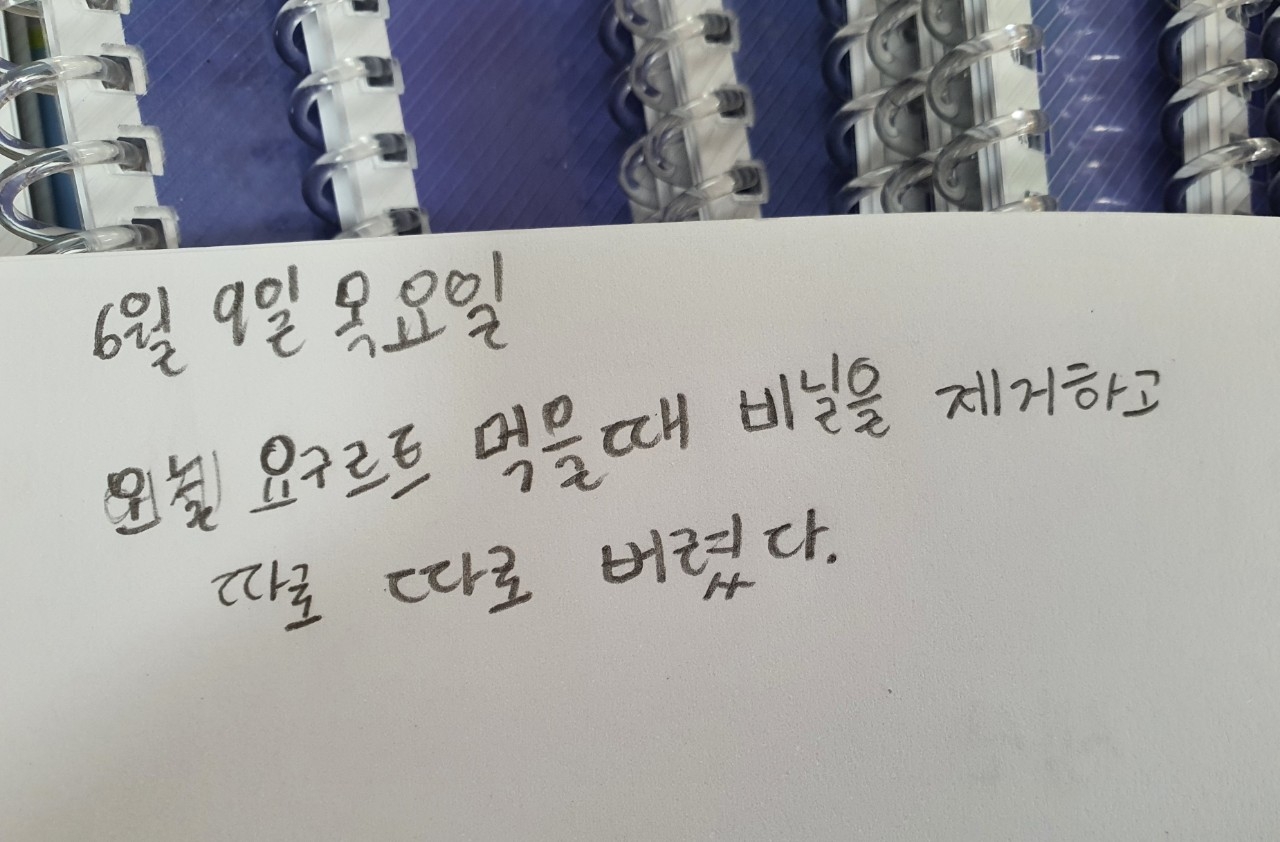 6월 9일 목요일
오늘 요구르트 먹을때 비닐을 제거하고
따로 따로 버렸다.